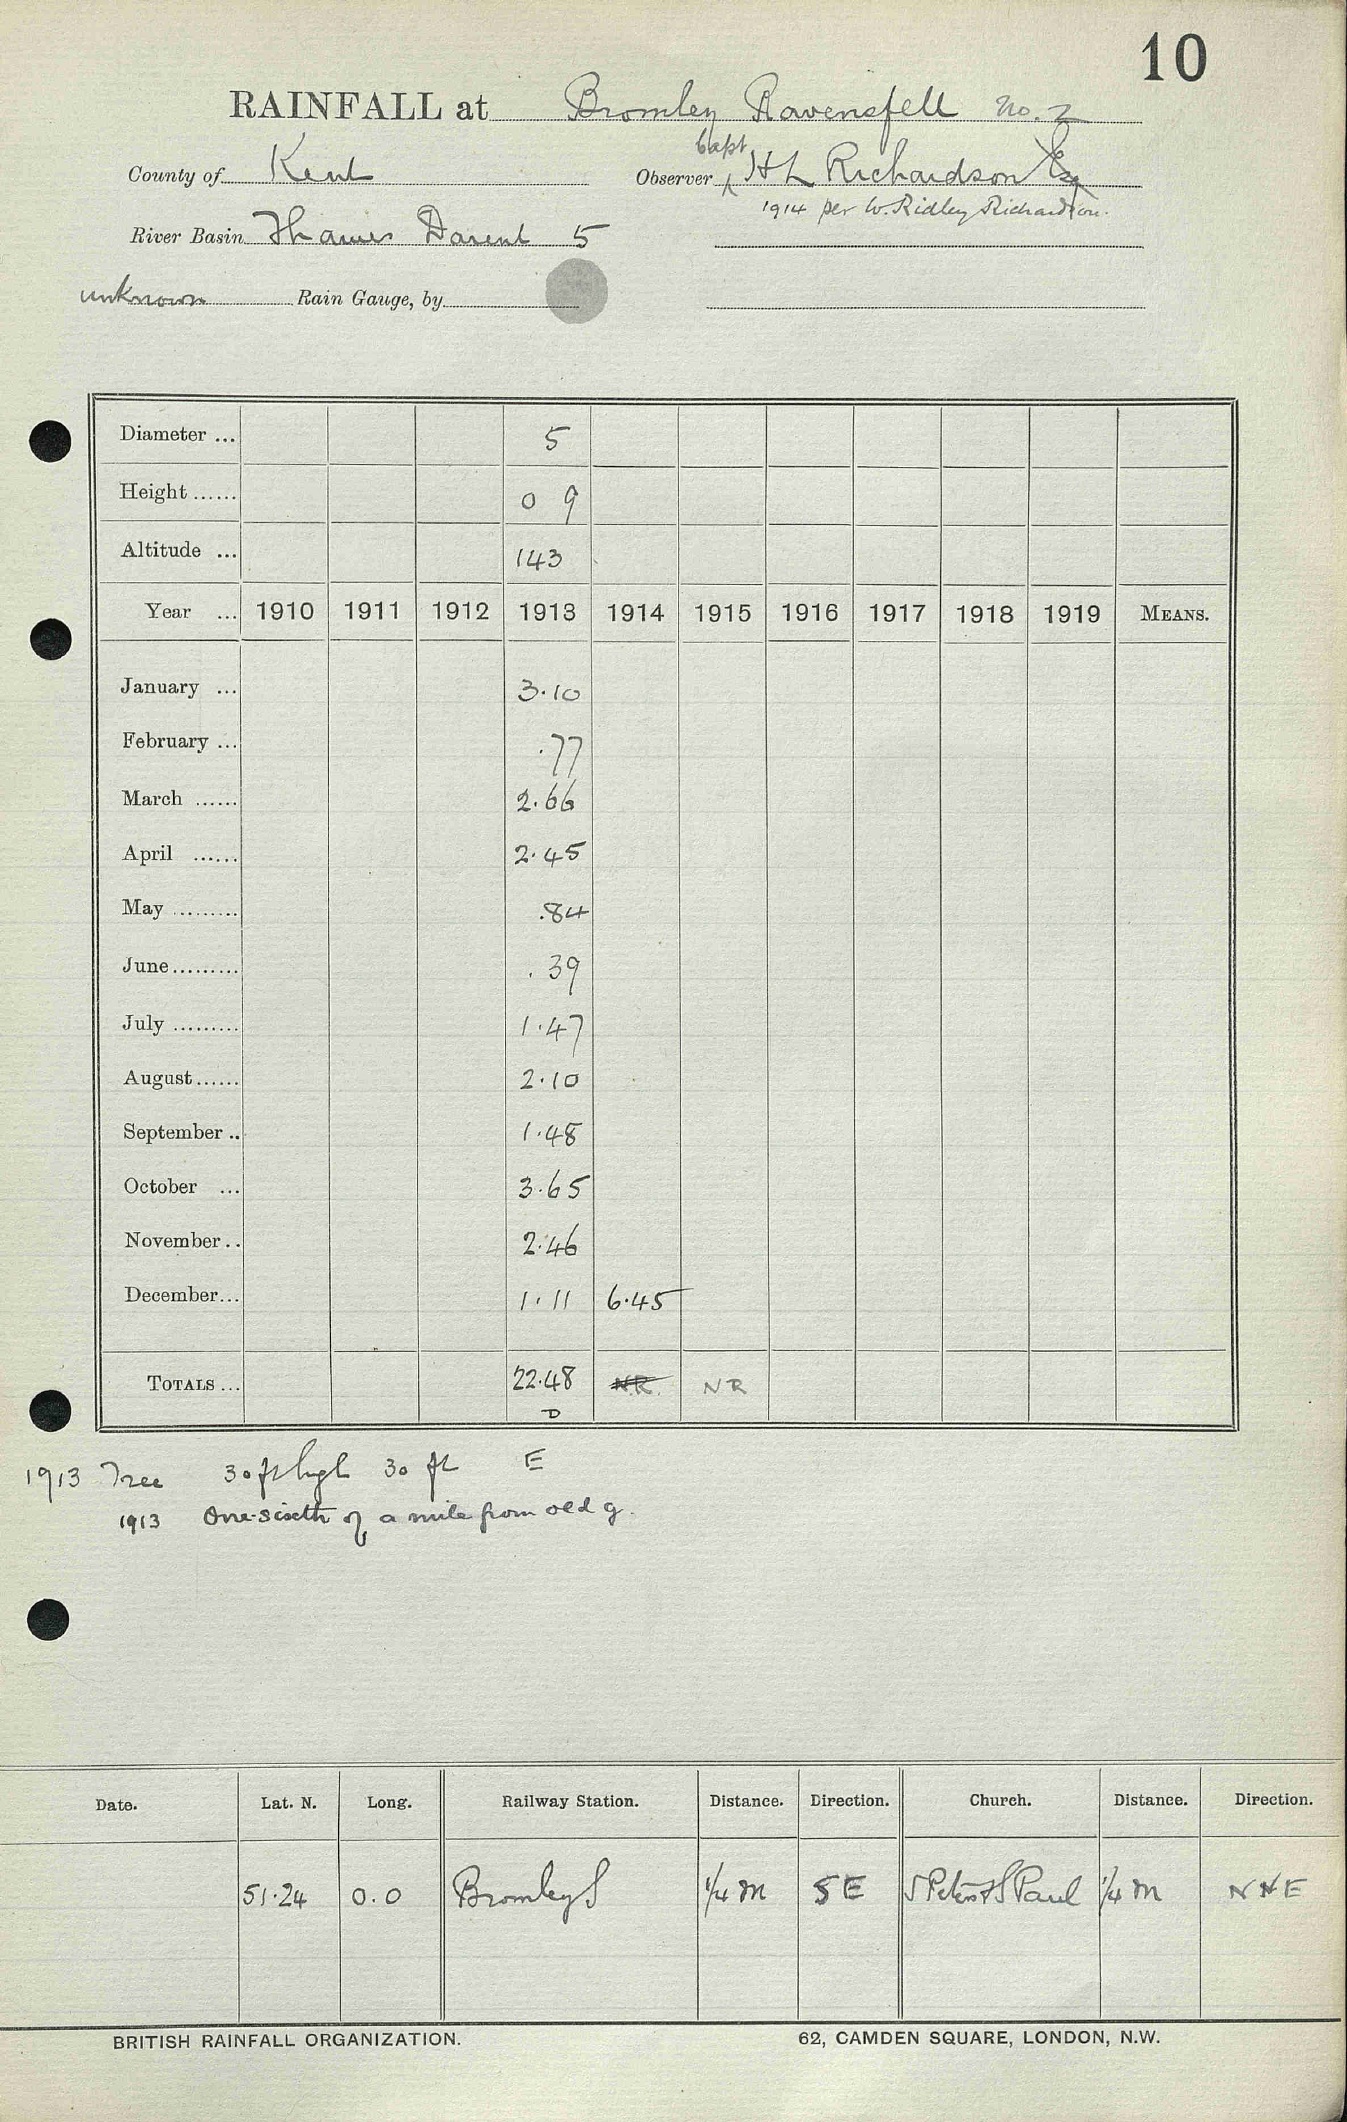 10
RAINFALL at Bromley Ravensfell No. 2
County of Kent Observer Capt H L Richardson Esq
1914 per W. Ridley Richardson.
River Basin Thames Darent 5
unknown Rain Gauge, by
Diameter ... 5
Height ...... 0 9
Altitude ... 143
Year ... 1910 1911 1912 1913 1914 1915 1916 1917 1918 1919 MEANS.
January ... 3.10
February ... .77
March ...... 2.66
April ...... 2.45
May ......... .84
June ......... .39
July ......... 1.47
August ...... 2.10
September .. 1.48
October ... 3.65
November .. 2.46
December ... 1.11 6.45
TOTALS ... 22.48 N.R. NR
D
1913 Tree 30 ft high 30 ft E
1913 One-sixth of a mile from old g.
Date. Lat. N. Long. Railway Station. Distance. Direction. Church. Distance. Direction.
51.24 0.0 Bromley S 1/4 m SE S Peter & S Paul 1/4 m NNE
BRITISH RAINFALL ORGANIZATION. 62, CAMDEN SQUARE, LONDON, N.W.